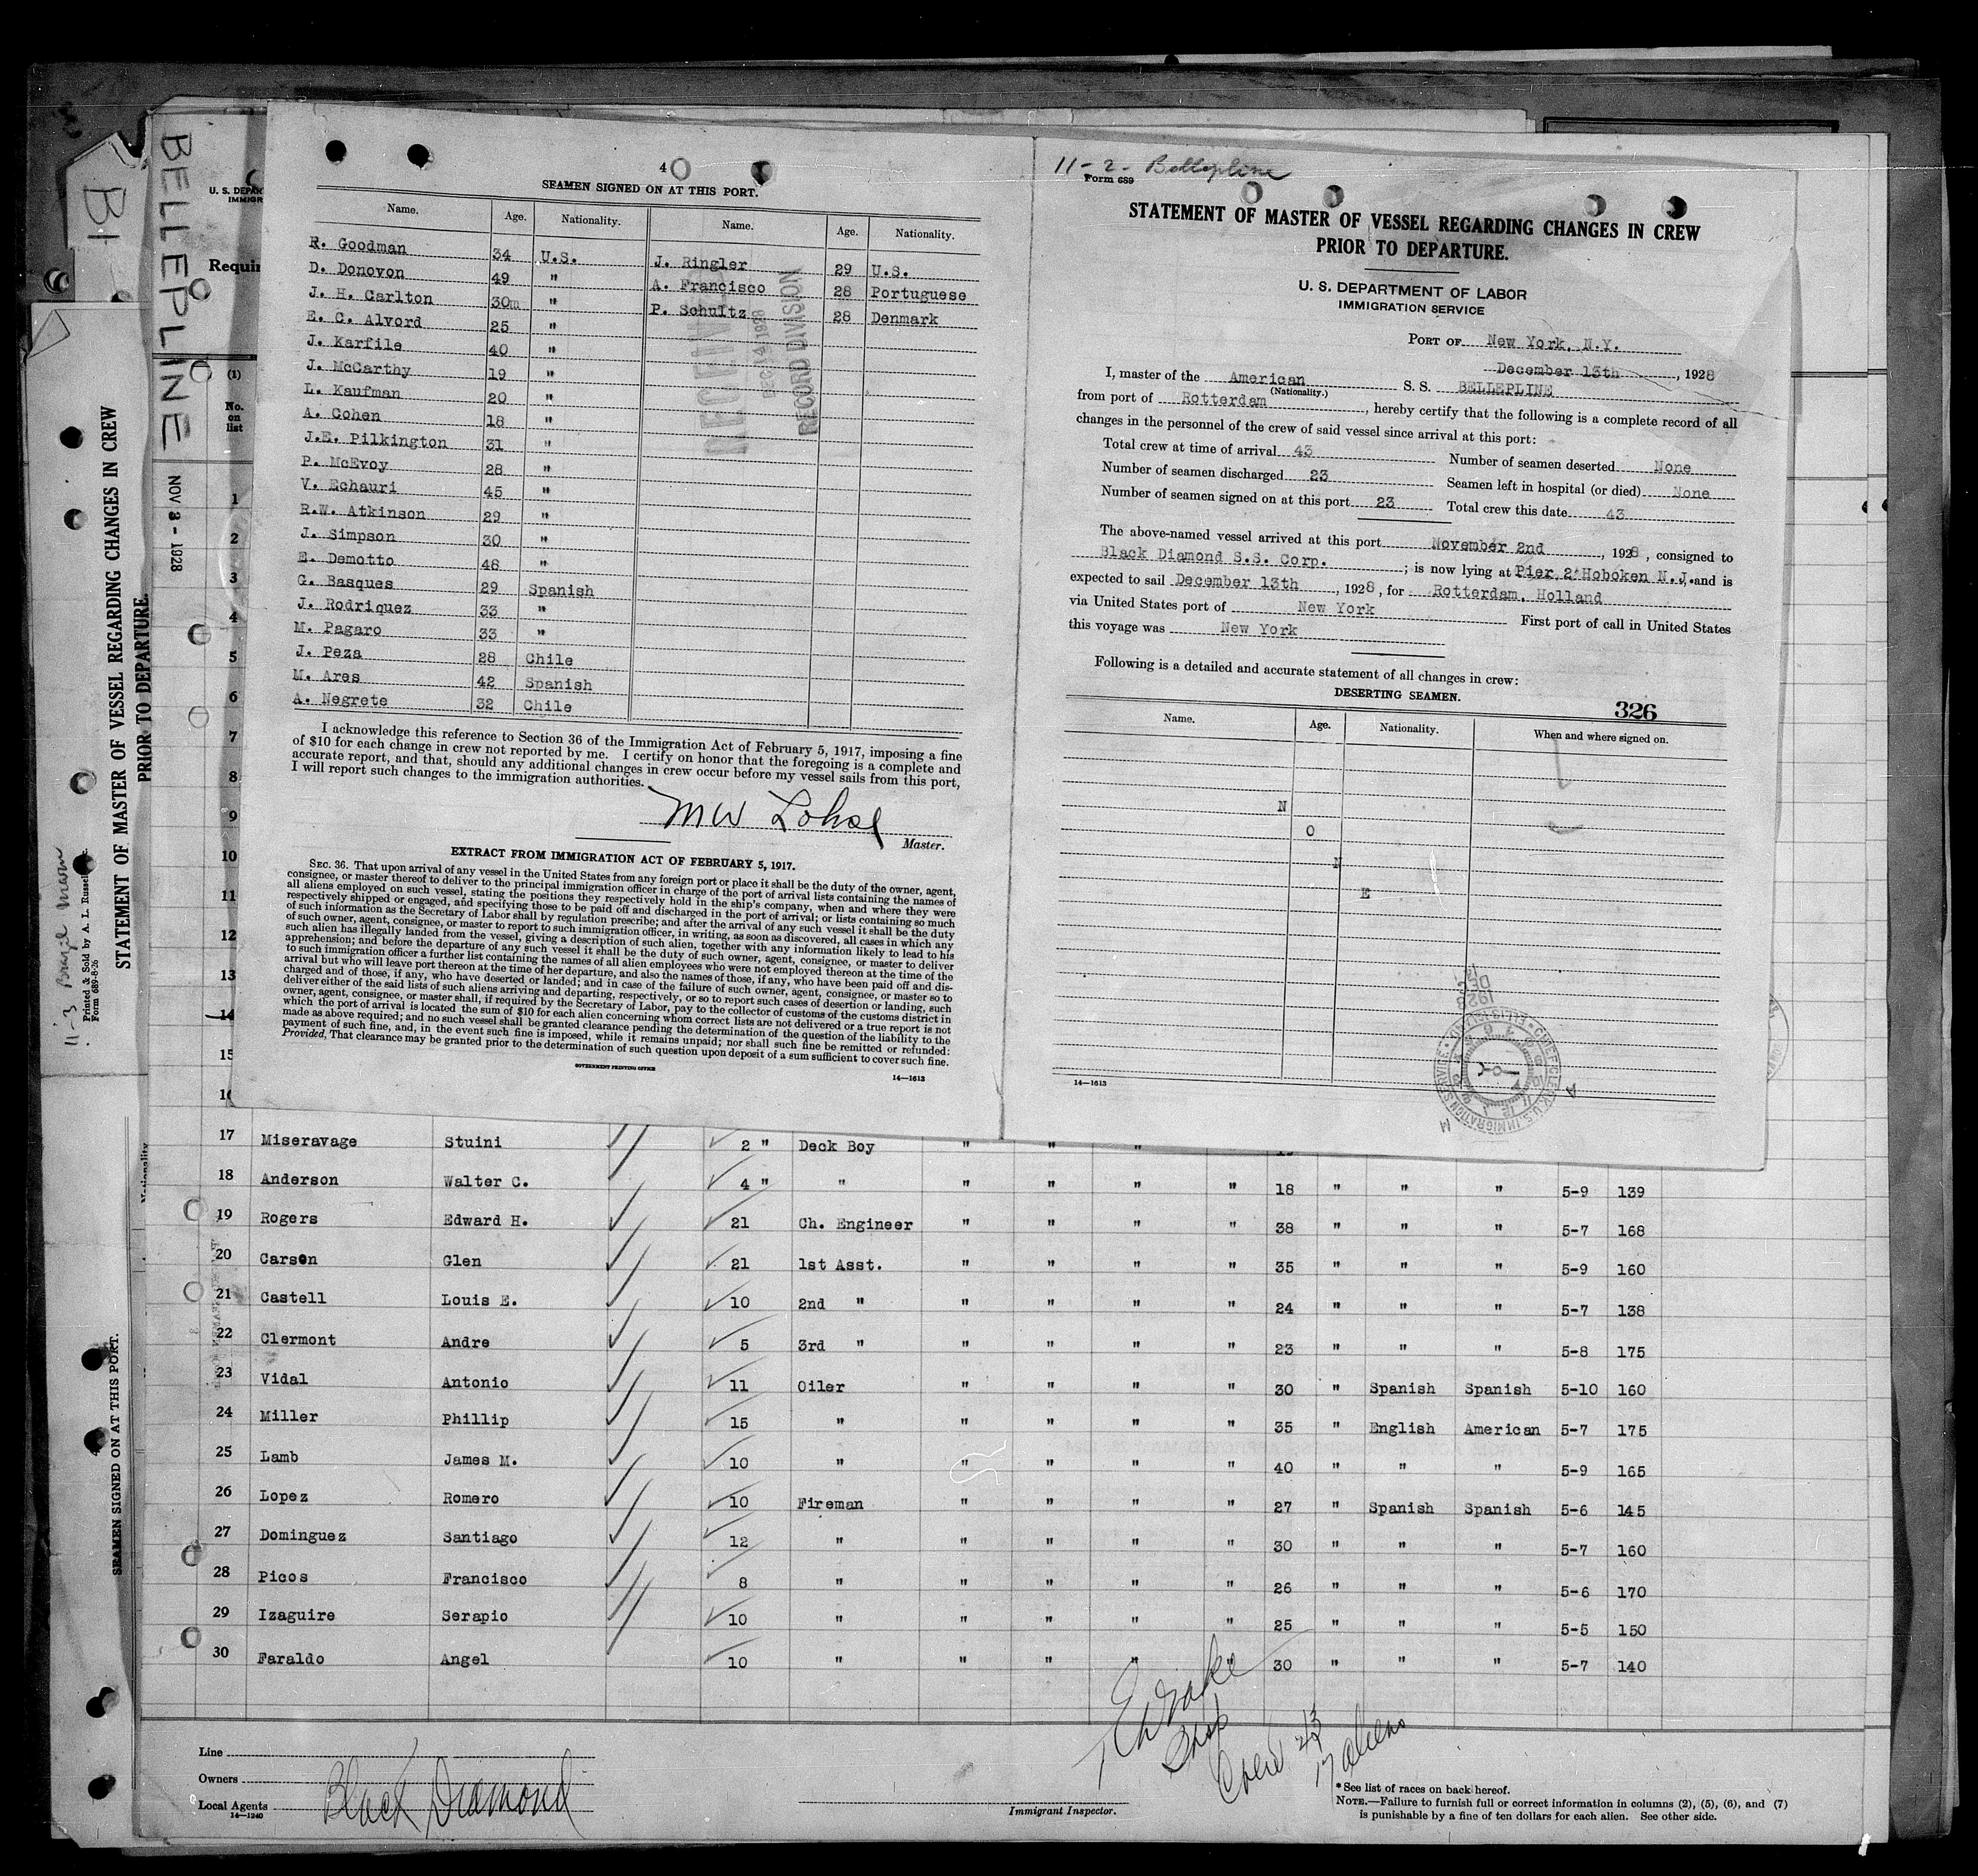 BELLEPLINE
B1
NOV 3 - 1928
STATEMENT OF MASTER OF VESSEL REGARDING CHANGES IN CREW
PRIOR TO DEPARTURE.
SEAMEN SIGNED ON AT THIS PORT.
Printed & Sold by A. L. Russell
Form 689-8-26
U. S. DEPAR
IMMIGR
Requir
(1)
No.
on
list
1
2
3
4
5
6
7
8
9
10
11
12
13
14
15
16
4
SEAMEN SIGNED ON AT THIS PORT.
Name. Age. Nationality. Name. Age. Nationality.
R. Goodman 34 U.S. J. Ringler 29 U.S.
D. Donovon 49 " A. Francisco 28 Portuguese
J. H. Carlton 30m " P. Schultz 28 Denmark
E. C. Alvord 25 "
J. Karfile 40 "
J. McCarthy 19 "
L. Kaufman 20 "
A. Cohen 18 "
J.E. Pilkington 31 "
P. McEvoy 28 "
V. Echauri 45 "
R.W. Atkinson 29 "
J. Simpson 30 "
E. Demotto 48 "
G. Basques 29 Spanish
J. Rodriquez 33 "
M. Pagaro 33 "
J. Peza 28 Chile
M. Ares 42 Spanish
A. Negrete 32 Chile
RECORD DIVISION
I acknowledge this reference to Section 36 of the Immigration Act of February 5, 1917, imposing a fine
of $10 for each change in crew not reported by me. I certify on honor that the foregoing is a complete and
accurate report, and that, should any additional changes in crew occur before my vessel sails from this port,
I will report such changes to the immigration authorities.
MW Lohse
Master.
EXTRACT FROM IMMIGRATION ACT OF FEBRUARY 5, 1917.
SEC. 36. That upon arrival of any vessel in the United States from any foreign port or place it shall be the duty of the owner, agent,
consignee, or master thereof to deliver to the principal immigration officer in charge of the port of arrival lists containing the names of
all aliens employed on such vessel, stating the positions they respectively hold in the ship's company, when and where they were
respectively shipped or engaged, and specifying those to be paid off and discharged in the port of arrival; or lists containing so much
of such information as the Secretary of Labor shall by regulation prescribe; and after the arrival of any such vessel it shall be the duty
of such owner, agent, consignee, or master to report to such immigration officer, in writing, as soon as discovered, all cases in which any
such alien has illegally landed from the vessel, giving a description of such alien, together with any information likely to lead to his
apprehension; and before the departure of any such vessel it shall be the duty of such owner, agent, consignee, or master to deliver
to such immigration officer a further list containing the names of all alien employees who were not employed thereon at the time of the
arrival but who will leave port thereon at the time of her departure, and also the names of those, if any, who have been paid off and dis-
charged and of those, if any, who have deserted or landed; and in case of the failure of such owner, agent, consignee, or master so to
deliver either of the said lists of such aliens arriving and departing, respectively, or so to report such cases of desertion or landing, such
owner, agent, consignee, or master shall, if required by the Secretary of Labor, pay to the collector of customs of the customs district in
which the port of arrival is located the sum of $10 for each alien concerning whom correct lists are not delivered or a true report is not
made as above required; and no such vessel shall be granted clearance pending the determination of the question of the liability to the
payment of such fine, and, in the event such fine is imposed, while it remains unpaid; nor shall such fine be remitted or refunded:
Provided, That clearance may be granted prior to the determination of such question upon deposit of a sum sufficient to cover such fine.
GOVERNMENT PRINTING OFFICE
14—1613
11-2- Bellepline
Form 689
STATEMENT OF MASTER OF VESSEL REGARDING CHANGES IN CREW
PRIOR TO DEPARTURE.
U. S. DEPARTMENT OF LABOR
IMMIGRATION SERVICE
PORT OF New York, N.Y.
December 13th, 1928
I, master of the American S. S. BELLEPLINE
(Nationality.)
from port of Rotterdam, hereby certify that the following is a complete record of all
changes in the personnel of the crew of said vessel since arrival at this port:
Total crew at time of arrival 43 Number of seamen deserted None
Number of seamen discharged 23 Seamen left in hospital (or died) None
Number of seamen signed on at this port 23 Total crew this date 43
The above-named vessel arrived at this port November 2nd, 1928, consigned to
Black Diamond S.S. Corp.; is now lying at Pier 2 Hoboken N.J. and is
expected to sail December 13th, 1928, for Rotterdam, Holland
via United States port of New York First port of call in United States
this voyage was New York
Following is a detailed and accurate statement of all changes in crew:
DESERTING SEAMEN.
326
Name. Age. Nationality. When and where signed on.
N
O
N
E
14—1613
17 Miseravage Stuini 2 " Deck Boy " " "
18 Anderson Walter C. 4 " " " " " " 18 " " " 5-9 139
19 Rogers Edward H. 21 Ch. Engineer " " " " 38 " " " 5-7 168
20 Carson Glen 21 1st Asst. " " " " 35 " " " 5-9 160
21 Castell Louis E. 10 2nd " " " " " 24 " " " 5-7 138
22 Clermont Andre 5 3rd " " " " " 23 " " " 5-8 175
23 Vidal Antonio 11 Oiler " " " " 30 " Spanish Spanish 5-10 160
24 Miller Phillip 15 " " " " " 35 " English American 5-7 175
25 Lamb James M. 10 " " " " " 40 " " " 5-9 165
26 Lopez Romero 10 Fireman " " " " 27 " Spanish Spanish 5-6 145
27 Dominguez Santiago 12 " " " " " 30 " " " 5-7 160
28 Picos Francisco 8 " " " " " 26 " " " 5-6 170
29 Izaguire Serapio 10 " " " " " 25 " " " 5-5 150
30 Faraldo Angel 10 " " " " " 30 " " " 5-7 140
Line
Owners
Local Agents Black Diamond
14—1240
Immigrant Inspector.
Crew 43
17 aliens
*See list of races on back hereof.
NOTE.—Failure to furnish full or correct information in columns (2), (5), (6), and (7)
is punishable by a fine of ten dollars for each alien. See other side.